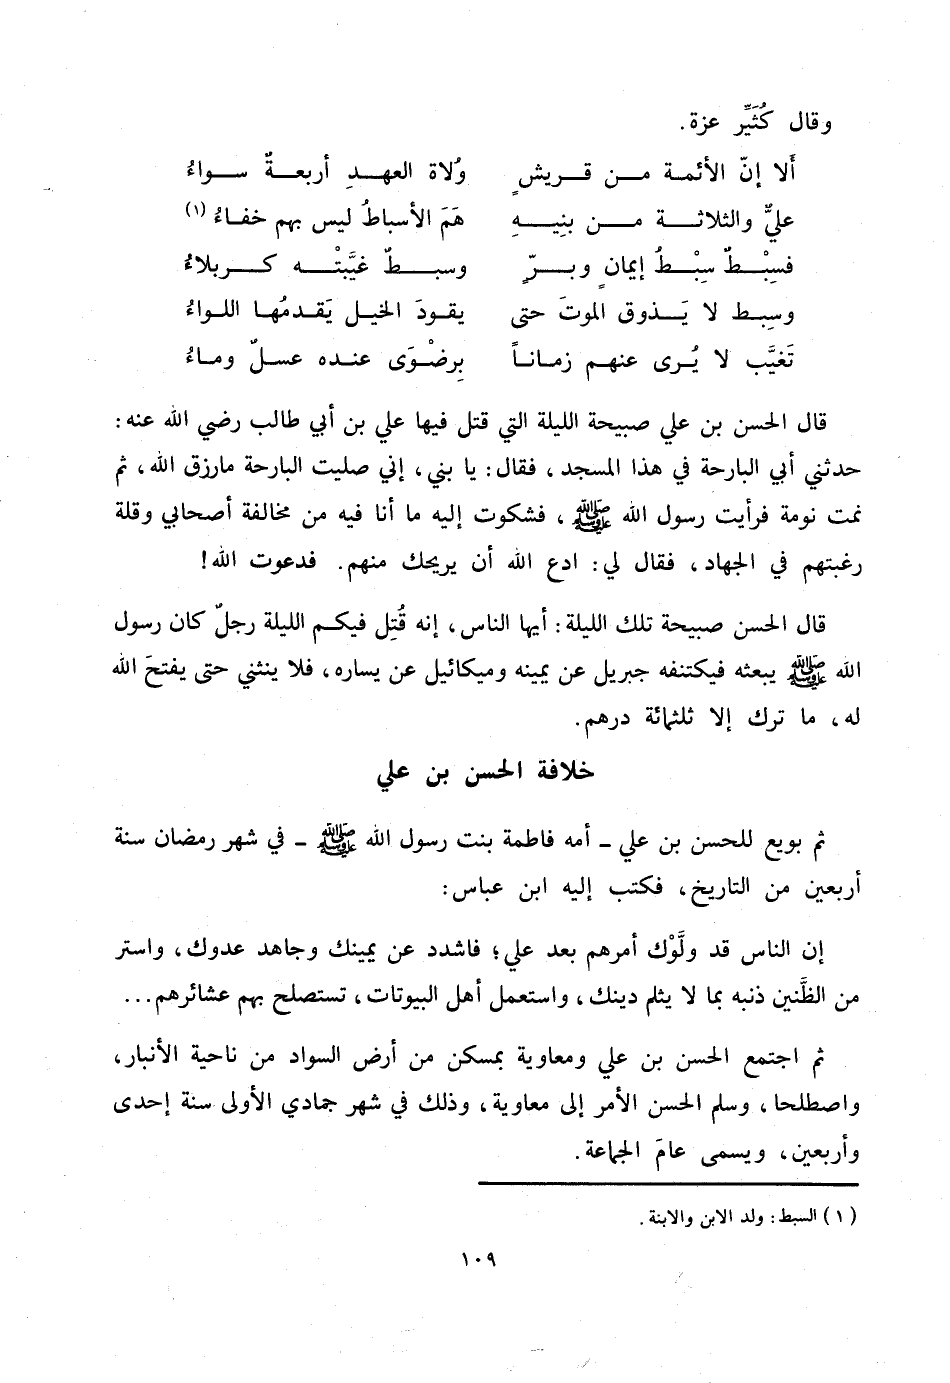 وقال كُثَيِّر عزة.
أَلا إنّ الأئمة مـن قـريشٍ وُلاة العهـدِ أربعـةٌ سـواءُ
عليٌّ والثلاثـة مـن بنِيـهِ هَمَ الأسباطُ ليس بهم خفاءُ (١)
فسِبْـطٌ سِبْـطُ إيمانٍ وبـرٍّ وسبـطٌ غيَّبتْـه كـربلاءُ
وسِبـط لا يَـذوق الموتَ حتى يقودَ الخيل يَقـدمُهـا اللواءُ
تَغيَّب لا يُرى عنهم زمـانـاً بِرضْوَى عنده عسلٌ ومـاءُ
قال الحسن بن علي صبيحة الليلة التي قتل فيها علي بن أبي طالب رضي الله عنه:
حدثني أبي البارحة في هذا المسجد، فقال: يا بني، إني صليت البارحة مارزق الله، ثم
نمت نومة فرأيت رسول الله ﷺ، فشكوت إليه ما أنا فيه من مخالفة أصحابي وقلة
رغبتهم في الجهاد، فقال لي: ادع الله أن يريحك منهم. فدعوت الله!
قال الحسن صبيحة تلك الليلة: أيها الناس، إنه قُتِل فيكم الليلة رجلٌ كان رسول
الله ﷺ يبعثه فيكتنفه جبريل عن يمينه وميكائيل عن يساره، فلا ينثني حتى يفتحَ الله
له، ما ترك إلا ثلثمائة درهم.
خلافة الحسن بن علي
ثم بويع للحسن بن علي ـ أمه فاطمة بنت رسول الله ﷺ ـ في شهر رمضان سنة
أربعين من التاريخ، فكتب إليه ابن عباس:
إن الناس قد ولَّوْك أمرهم بعد علي؛ فاشدد عن يمينك وجاهد عدوك، واستر
من الظَّنين ذنبه بما لا يثلم دينك، واستعمل أهل البيوتات، تستصلح بهم عشائرهم...
ثم اجتمع الحسن بن علي ومعاوية بمسكن من أرض السواد من ناحية الأنبار،
واصطلحا، وسلم الحسن الأمر إلى معاوية، وذلك في شهر جمادي الأولى سنة إحدى
وأربعين، ويسمى عامَ الجماعة.
(١) السبط: ولد الابن والابنة.
١٠٩